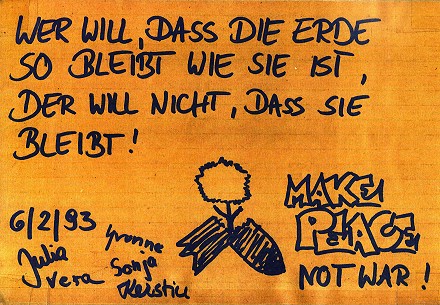 WER WILL, DASS DIE ERDE
SO BLEIBT WIE SIE IST,
DER WILL NICHT, DASS SIE
BLEIBT!
MAKE
PEACE
NOT WAR!
6/2/93
Julia
Vera
Yvonne
Sonja
Kerstin